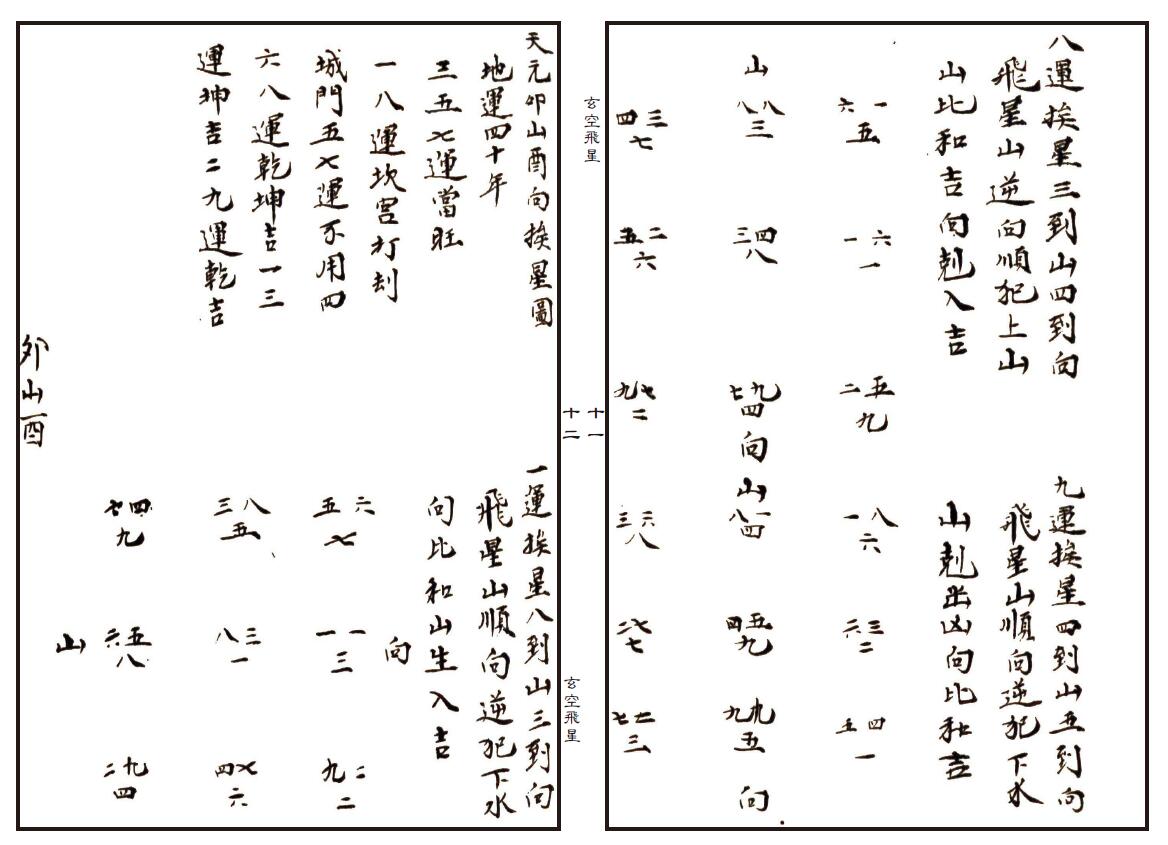 八運挨星三到山四到向
飛星山逆向順犯上山
山比和吉向剋入吉
六一
五
一六
一
二五
九
山
八八
三
三四
八
七九
四
向
四三
七
五二
六
九七
二
九運挨星四到山五到向
飛星山順向逆犯下水
山剋出凶向比和吉
一八
六
六三
二
五四
一
山
八一
四
四五
九
九九
五
向
三六
八
八七
七
七二
三
玄空飛星
十一
十二
玄空飛星
天元卯山酉向挨星圖
地運四十年
三五七運當旺
一八運坎宮打刧
城門五七運不用四
六八運乾坤吉一三
運坤吉二九運乾吉
卯山酉
一運挨星八到山三到向
飛星山順向逆犯下水
向比和山生入吉
五六
七
向
一一
三
九二
二
三八
五
八三
一
四七
六
七四
九
六五
八
二九
四
山